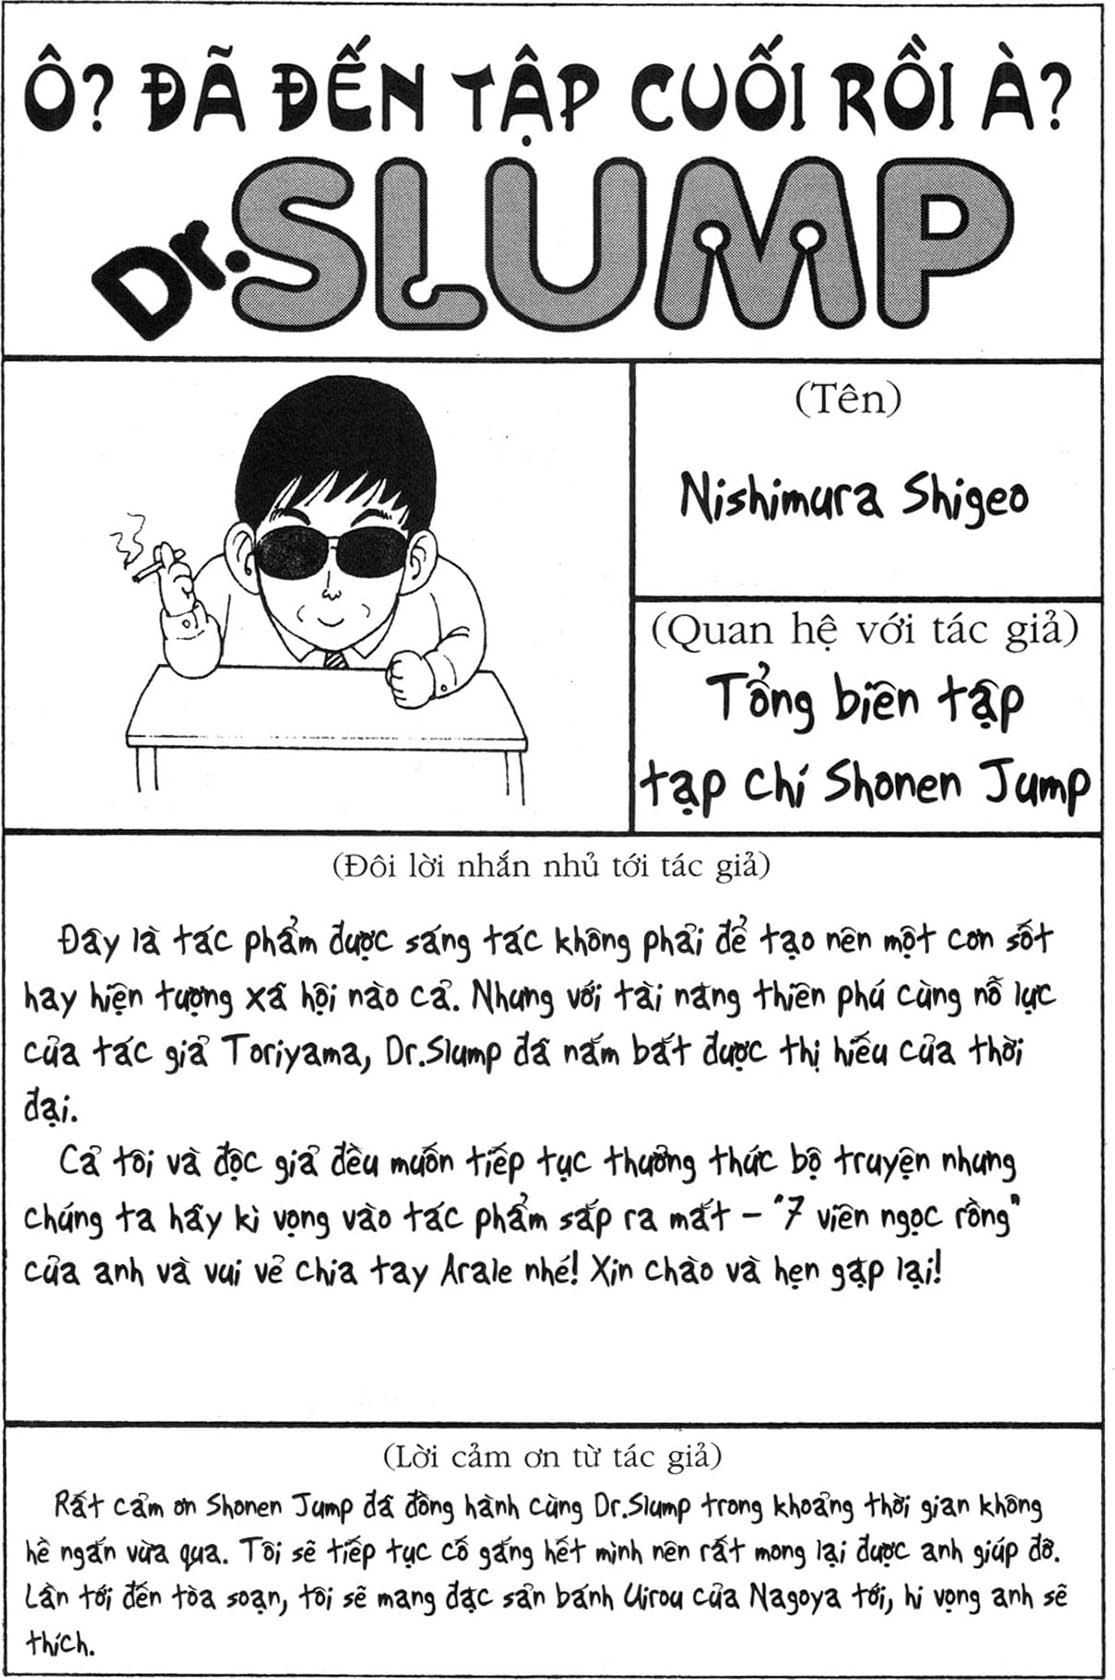 Ô? ĐÃ ĐẾN TẬP CUỐI RỒI À?
Dr. SLUMP
(Tên)
Nishimura Shigeo
(Quan hệ với tác giả)
Tổng biên tập
tạp chí Shonen Jump
(Đôi lời nhắn nhủ tới tác giả)
Đây là tác phẩm được sáng tác không phải để tạo nên một cơn sốt
hay hiện tượng xã hội nào cả. Nhưng với tài năng thiên phú cùng nỗ lực
của tác giả Toriyama, Dr.Slump đã nắm bắt được thị hiếu của thời
đại.
Cả tôi và độc giả đều muốn tiếp tục thưởng thức bộ truyện nhưng
chúng ta hãy kì vọng vào tác phẩm sắp ra mắt – "7 viên ngọc rồng"
của anh và vui vẻ chia tay Arale nhé! Xin chào và hẹn gặp lại!
(Lời cảm ơn từ tác giả)
Rất cảm ơn Shonen Jump đã đồng hành cùng Dr.Slump trong khoảng thời gian không
hề ngắn vừa qua. Tôi sẽ tiếp tục cố gắng hết mình nên rất mong lại được anh giúp đỡ.
Lần tới đến tòa soạn, tôi sẽ mang đặc sản bánh Uirou của Nagoya tới, hi vọng anh sẽ
thích.